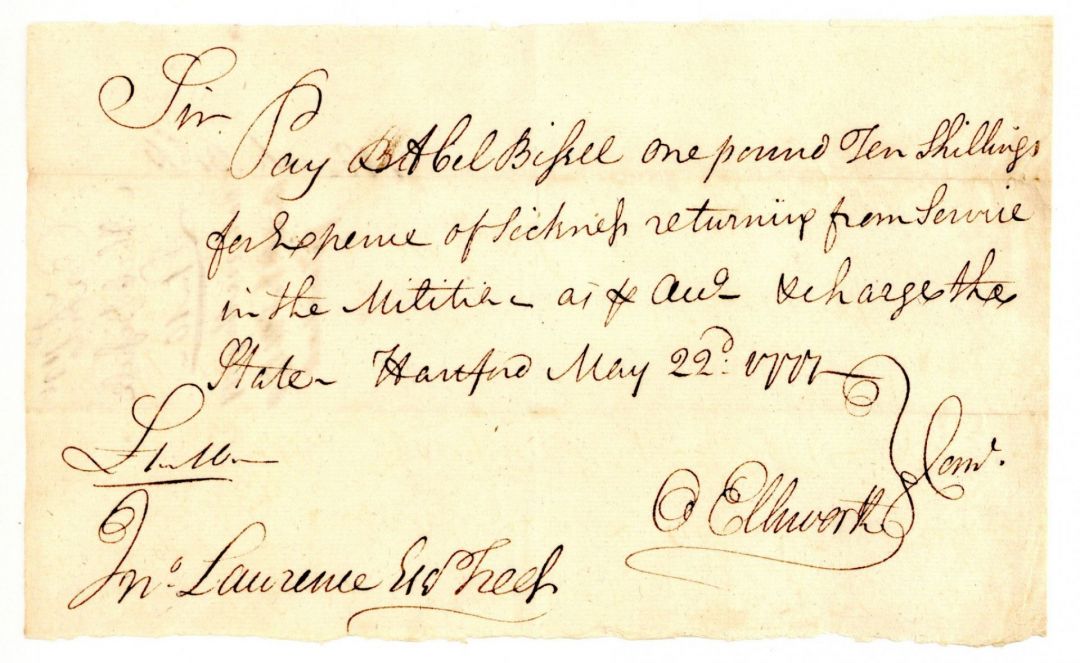 Sir.
Pay Abel Bissell one pound Ten Shillings
for Expence of Sickness returning from Service
in the Militia - as & Acco. & charge the
State - Hartford May 22d. 1777
£1..10..-
O Ellsworth Comte.
Jno. Lawrence Esqr Treasr